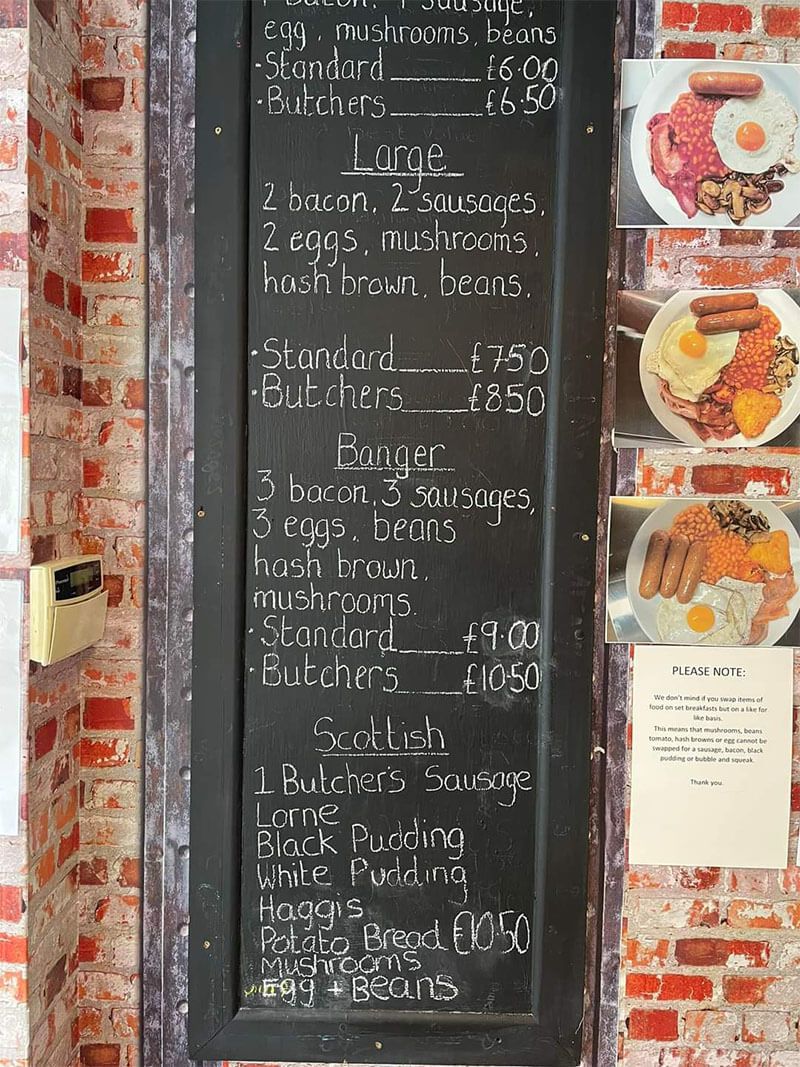 1 bacon, 1 sausage,
egg, mushrooms, beans
·Standard £6·00
·Butchers £6·50
Large
2 bacon, 2 sausages,
2 eggs, mushrooms,
hash brown, beans,
·Standard £7·50
·Butchers £8·50
Banger
3 bacon, 3 sausages,
3 eggs, beans
hash brown,
mushrooms.
·Standard £9·00
·Butchers £10·50
Scottish
1 Butcher's Sausage
Lorne
Black Pudding
White Pudding
Haggis
Potato Bread £10·50
Mushrooms
Egg + Beans
PLEASE NOTE:
We don't mind if you swap items of
food on set breakfasts but on a like for
like basis.
This means that mushrooms, beans
tomato, hash browns or egg cannot be
swapped for a sausage, bacon, black
pudding or bubble and squeak.
Thank you.